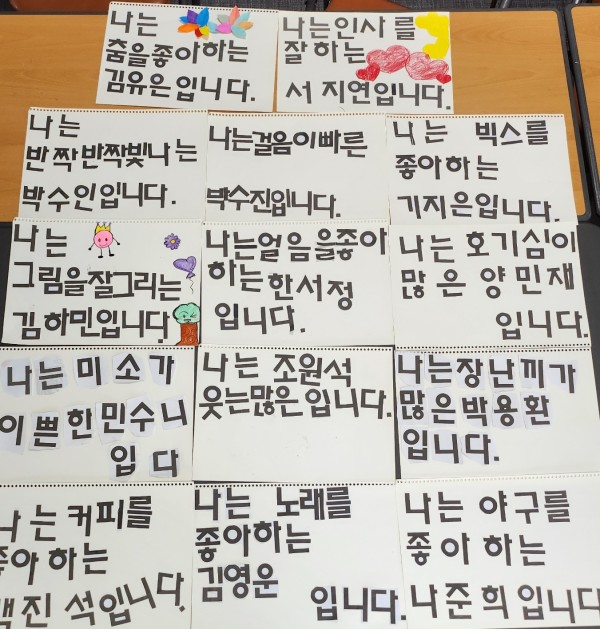 나는
춤을좋아하는
김유은입니다.
나는인사를
잘하는
서지연입니다.
나는
반짝반짝빛나는
박수인입니다.
나는걸음이빠른
박수진입니다.
나는 빅스를
좋아하는
기지은입니다.
나는
그림을잘그리는
김하민입니다
나는얼음을좋아
하는한서정
입니다.
나는 호기심이
많은 양민재
입니다.
나는 미소가
이쁜한민수니
입 다
나는 조원석
웃는많은입니다.
나는장난끼가
많은박용환
입니다.
나는커피를
좋아하는
진석입니다.
나는 노래를
좋아하는
김영운
입니다.
나는 야구를
좋아하는
나준희입니다